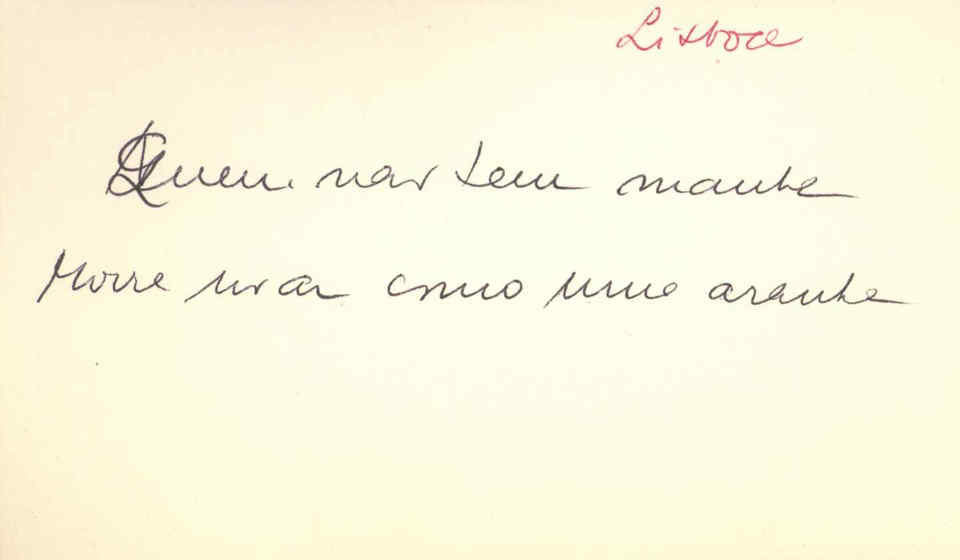 Lisboa
Quem não tem manha
Morre no ar como uma aranha